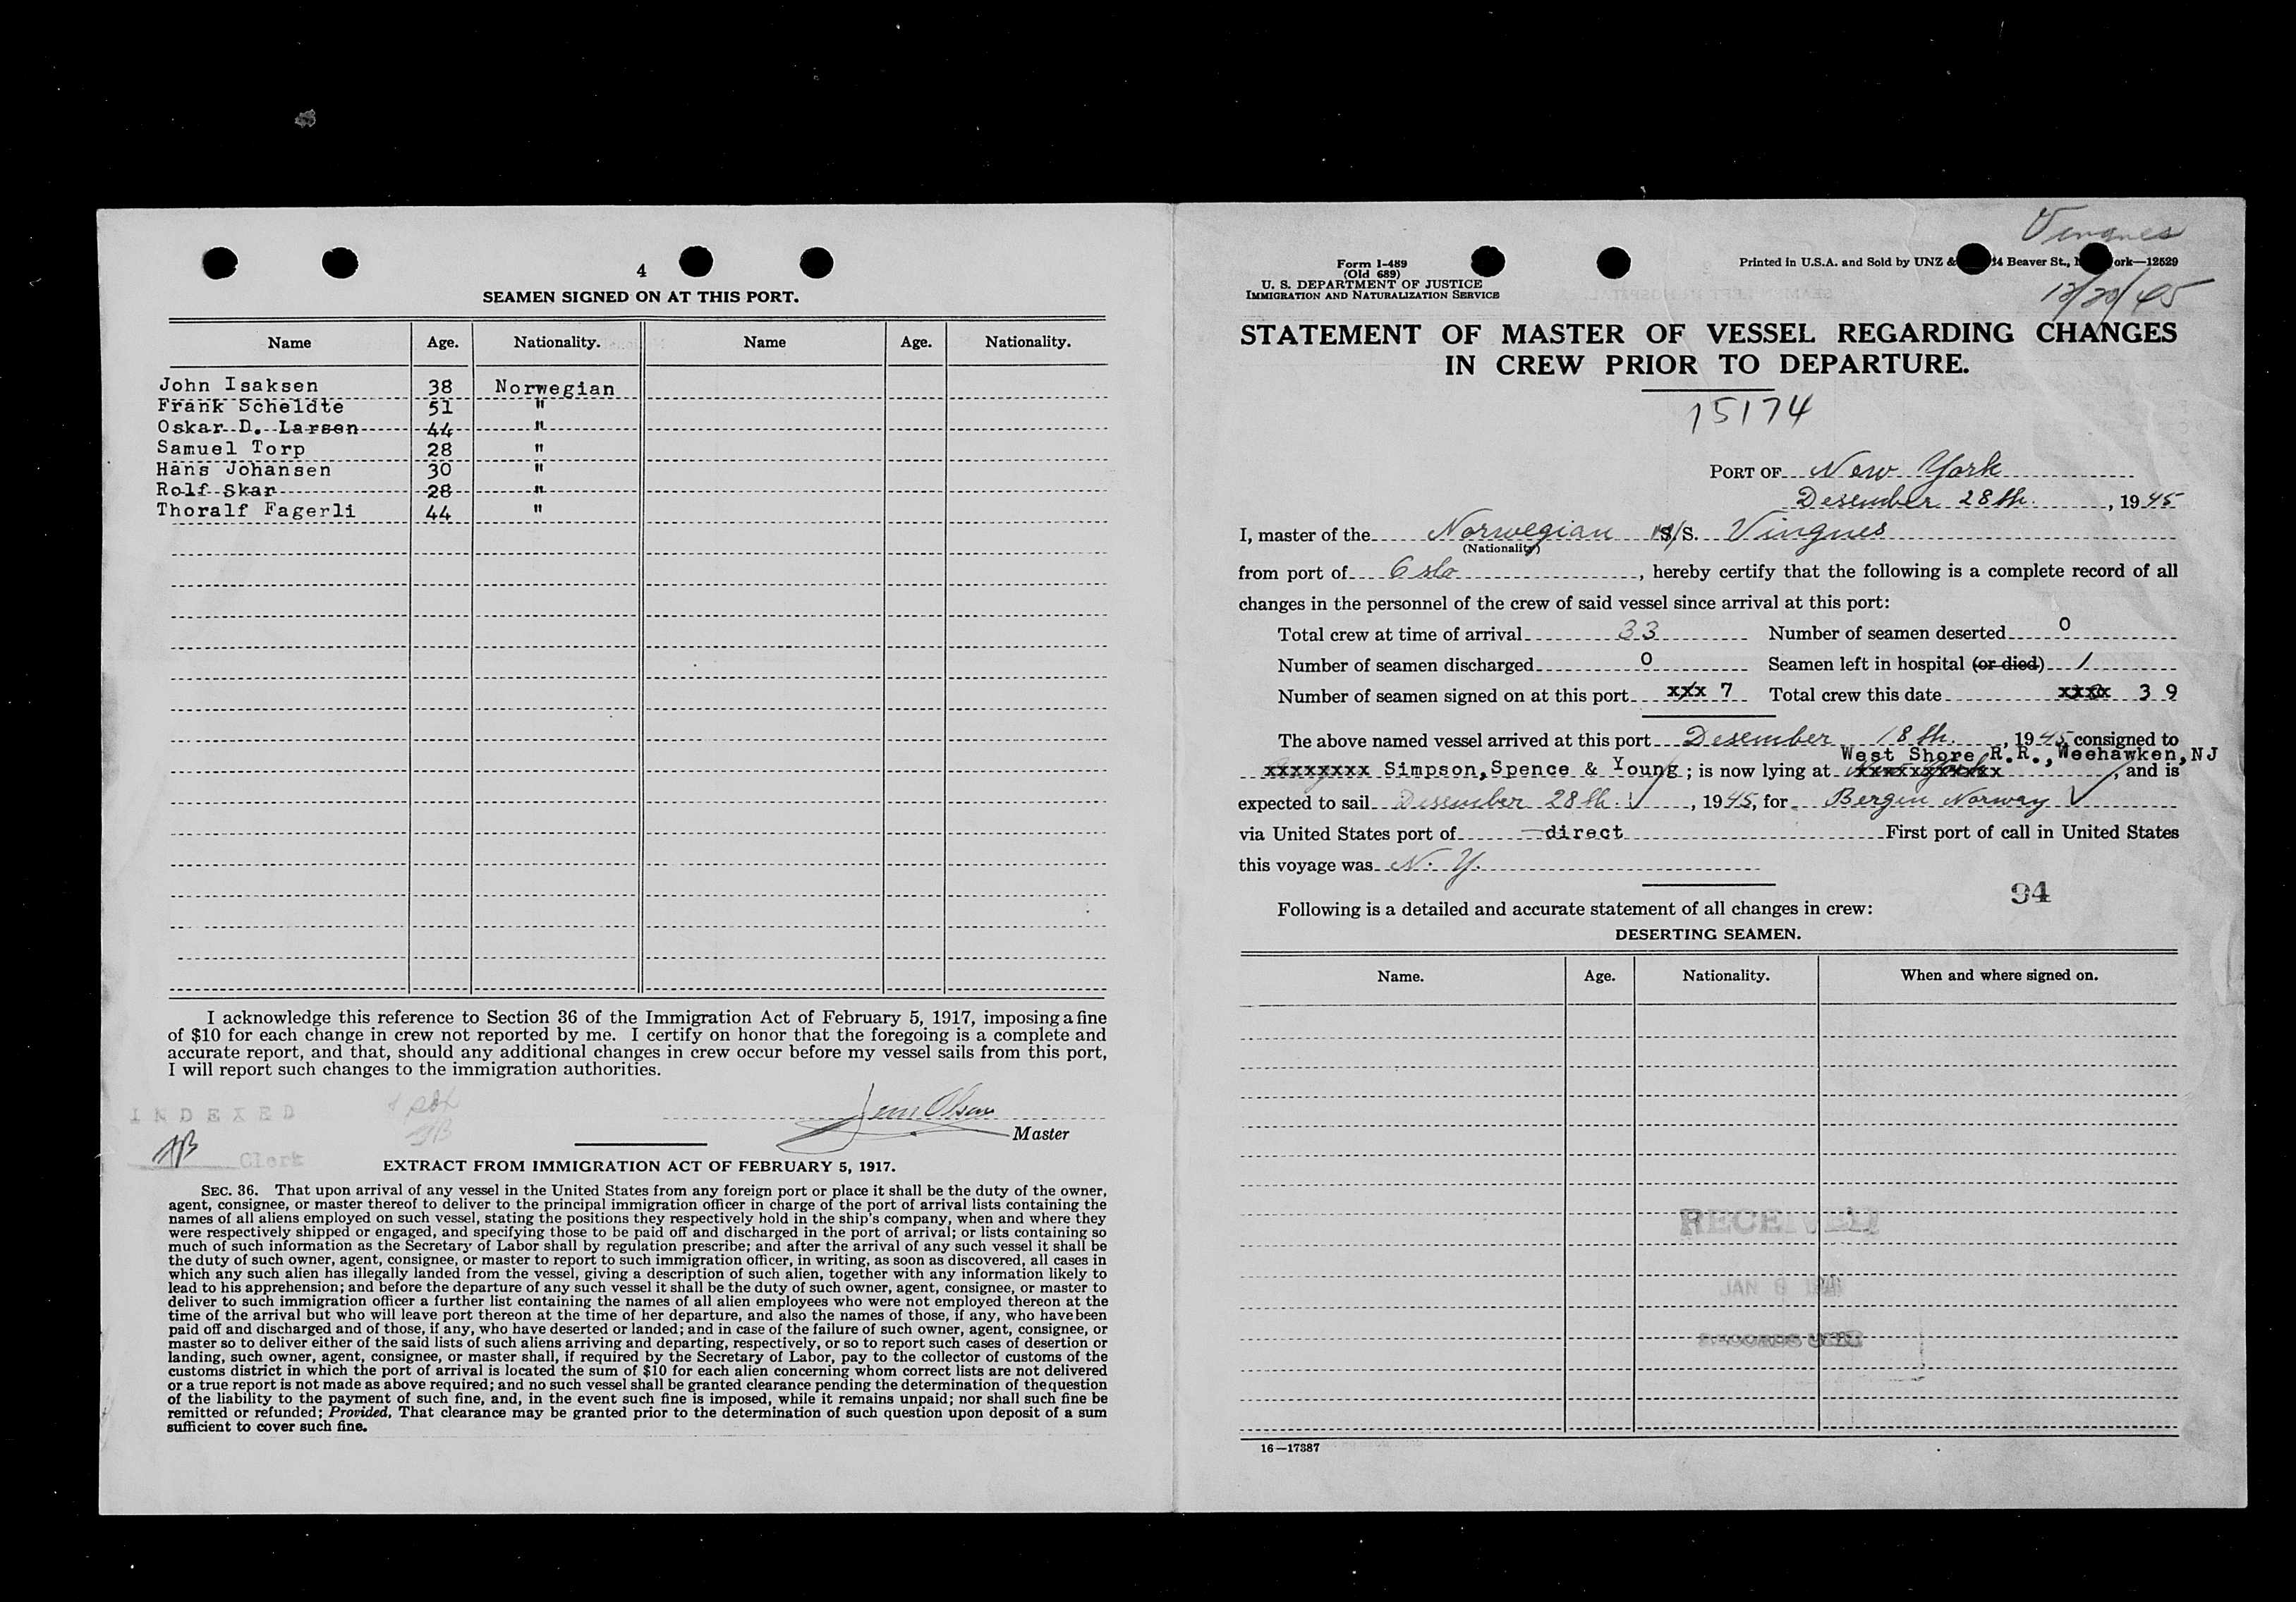 4
SEAMEN SIGNED ON AT THIS PORT.
Name Age. Nationality. Name Age. Nationality.
John Isaksen 38 Norwegian
Frank Scheldte 51 "
Oskar D. Larsen 44 "
Samuel Torp 28 "
Hans Johansen 30 "
Rolf Skar 28 "
Thoralf Fagerli 44 "
I acknowledge this reference to Section 36 of the Immigration Act of February 5, 1917, imposing a fine
of $10 for each change in crew not reported by me. I certify on honor that the foregoing is a complete and
accurate report, and that, should any additional changes in crew occur before my vessel sails from this port,
I will report such changes to the immigration authorities.
INDEXED
Jens Olsen
Master
Clerk
EXTRACT FROM IMMIGRATION ACT OF FEBRUARY 5, 1917.
SEC. 36. That upon arrival of any vessel in the United States from any foreign port or place it shall be the duty of the owner,
agent, consignee, or master thereof to deliver to the principal immigration officer in charge of the port of arrival lists containing the
names of all aliens employed on such vessel, stating the positions they respectively hold in the ship's company, when and where they
were respectively shipped or engaged, and specifying those to be paid off and discharged in the port of arrival; or lists containing so
much of such information as the Secretary of Labor shall by regulation prescribe; and after the arrival of any such vessel it shall be
the duty of such owner, agent, consignee, or master to report to such immigration officer, in writing, as soon as discovered, all cases in
which any such alien has illegally landed from the vessel, giving a description of such alien, together with any information likely to
lead to his apprehension; and before the departure of any such vessel it shall be the duty of such owner, agent, consignee, or master to
deliver to such immigration officer a further list containing the names of all alien employees who were not employed thereon at the
time of the arrival but who will leave port thereon at the time of her departure, and also the names of those, if any, who have been
paid off and discharged and of those, if any, who have deserted or landed; and in case of the failure of such owner, agent, consignee, or
master so to deliver either of the said lists of such aliens arriving and departing, respectively, or so to report such cases of desertion or
landing, such owner, agent, consignee, or master shall, if required by the Secretary of Labor, pay to the collector of customs of the
customs district in which the port of arrival is located the sum of $10 for each alien concerning whom correct lists are not delivered
or a true report is not made as above required; and no such vessel shall be granted clearance pending the determination of the question
of the liability to the payment of such fine, and, in the event such fine is imposed, while it remains unpaid; nor shall such fine be
remitted or refunded; Provided, That clearance may be granted prior to the determination of such question upon deposit of a sum
sufficient to cover such fine.
Vingnes
Form I-489
(Old 689)
U. S. DEPARTMENT OF JUSTICE
IMMIGRATION AND NATURALIZATION SERVICE
Printed in U.S.A. and Sold by UNZ & 14 Beaver St., ork—12529
STATEMENT OF MASTER OF VESSEL REGARDING CHANGES
IN CREW PRIOR TO DEPARTURE.
15174
PORT OF New York
Desember 28th. , 1945
I, master of the Norwegian M/S. Vingnes
(Nationality)
from port of Oslo , hereby certify that the following is a complete record of all
changes in the personnel of the crew of said vessel since arrival at this port:
Total crew at time of arrival 33 Number of seamen deserted 0
Number of seamen discharged 0 Seamen left in hospital (or died) 1
Number of seamen signed on at this port xxx 7 Total crew this date xxxx 39
The above named vessel arrived at this port Desember 18th. , 1945 consigned to
West Shore R.R., Weehawken, NJ
xxxxxxxx Simpson, Spence & Young ; is now lying at xxxxxxxxxxxx , and is
expected to sail Desember 28th. , 1945, for Bergen Norway
via United States port of direct First port of call in United States
this voyage was N. Y.
94
Following is a detailed and accurate statement of all changes in crew:
DESERTING SEAMEN.
Name. Age. Nationality. When and where signed on.
RECEIVED
JAN
RECORDS UNIT
16—17387